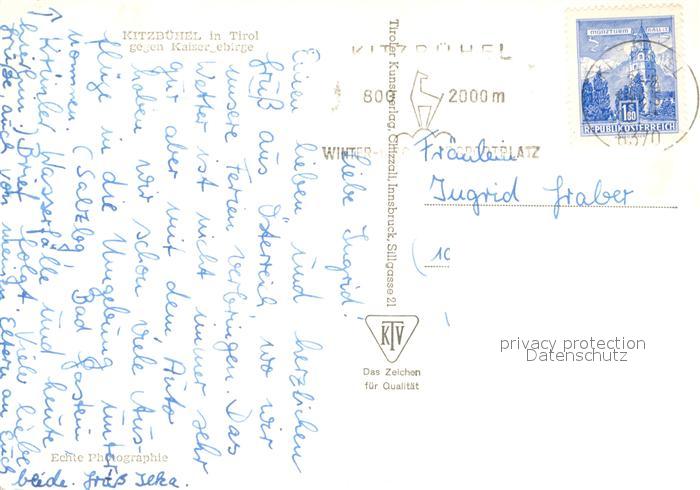 KITZBÜHEL in Tirol
gegen Kaisergebirge
KITZBÜHEL
800 2000 m
WINTER- SPORTPLATZ
MÜNZTURM HALL i.T.
1.80
REPUBLIK ÖSTERREICH
6370
Tiroler Kunstverlag Chizzali, Innsbruck, Sillgasse 21
Fräulein
Ingrid Graber
(10
Liebe Ingrid!
Einen lieben und herzlichen
Gruß aus Österreich wo wir
unsere Ferien verbringen. Das
Wetter ist nicht immer sehr
gut aber mit dem Auto
haben wir schon viele Aus-
flüge in die Umgebung unter-
nommen. (Salzbg, Bad Gastein
Krimler Wasserfälle und heute
Brief folgt. Viele liebe
Grüße auch von meinen Eltern an Euch
beide. Gruß Ilka.
KTV
Das Zeichen
für Qualität
Echte Photographie
privacy protection
Datenschutz